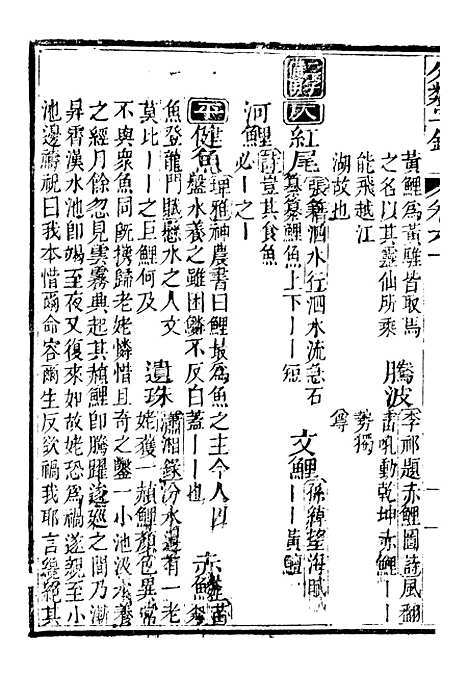 黃鯉爲黃騅皆取馬
之名以其靈仙所乘
能飛越江
湖故也
騰波
李祁題赤鯉圖詩風翻
雷吼動乾坤赤鯉——
勢獨
尊
紅尾
張籍泗水行泗水流急石
纂纂鯉魚上下——短
文鯉
孫綽望海賦
——黃鱣
河鯉
詩豈其食魚
必—之—
平
健魚
埤雅神農書曰鯉最爲魚之主今人以
盤水養之雖困鱗不反白蓋——也
赤鱗
黃
秀
魚登龍門賦懸水之人文
莫比——之巨鯉何及
遺珠
瀟湘錄汾水邊有一老
姥獲一赬鯉顏色異常
不與衆魚同旣攜歸老姥憐惜且奇之鑿一小池汲水養
之經月餘忽見雲霧興起其赬鯉卽騰躍逡巡之間乃漸
昇霄漢水池卽竭至夜又復來如故姥恐爲禍遂親至小
池邊禱祝曰我本惜爾命容爾生反欲禍我耶言纔絕其